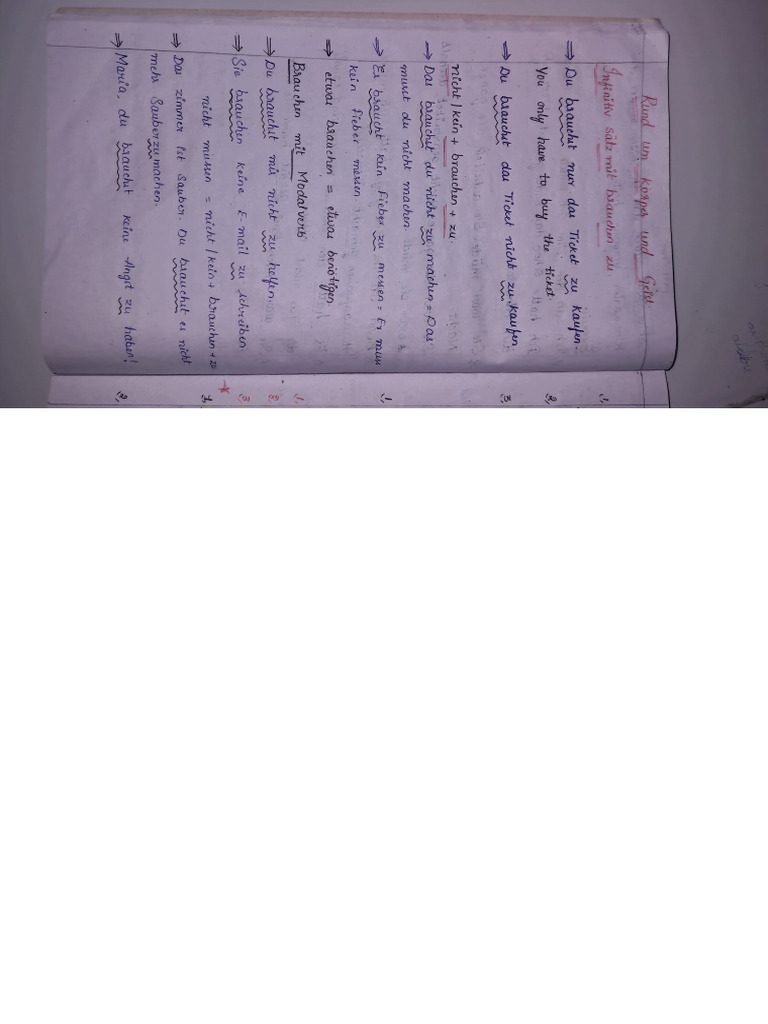 Rund um Körper und Geist
Infinitiv satz mit brauchen zu
⇒ Du brauchst nur das Ticket zu kaufen.
You only have to buy the ticket
⇒ Du brauchst das Ticket nicht zu kaufen
nicht / kein + brauchen + zu.
→ Das brauchst du nicht zu machen = Das
musst du nicht machen.
⇒ Er braucht kein fieber zu messen = Er muss
kein fieber messen
⇒ etwas brauchen = etwas benötigen
Brauchen mit Modalverb
⇒ Du brauchst mir nicht zu helfen
⇒ Sie brauchen keine E-mail zu schreiben
nicht müssen = nicht / kein + brauchen + zu
⇒ Das zimmer ist sauber. Du brauchst es nicht
mehr sauberzumachen.
⇒ Maria, du brauchst keine Angst zu haben!
1,
2,
3,
1,
1,
2,
3,
*
1,
2,